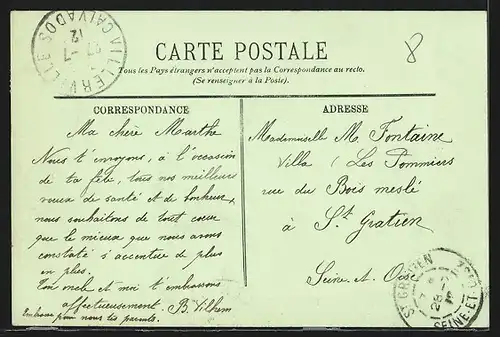 VILLERVILLE
27 -7
12
CALVADOS
CARTE POSTALE
8
Tous les Pays étrangers n'acceptent pas la Correspondance au recto.
(Se renseigner à la Poste).
CORRESPONDANCE
Ma chère Marthe
Nous t'envoyons, à l'occasion
de ta fête, tous nos meilleurs
vœux de santé et de bonheur,
nous souhaitons de tout cœur
que le mieux que nous avons
constaté s'accentue de plus
en plus.
Ton oncle et moi t'embrassons
affectueusement. B. Vilhem
Embrasse pour nous tes parents.
ADRESSE
Mademoiselle M. Fontaine
Villa (Les Pommiers
rue du Bois meslé
à St Gratien
Seine. et. Oise
ST GRATIEN
SEINE-ET-OISE